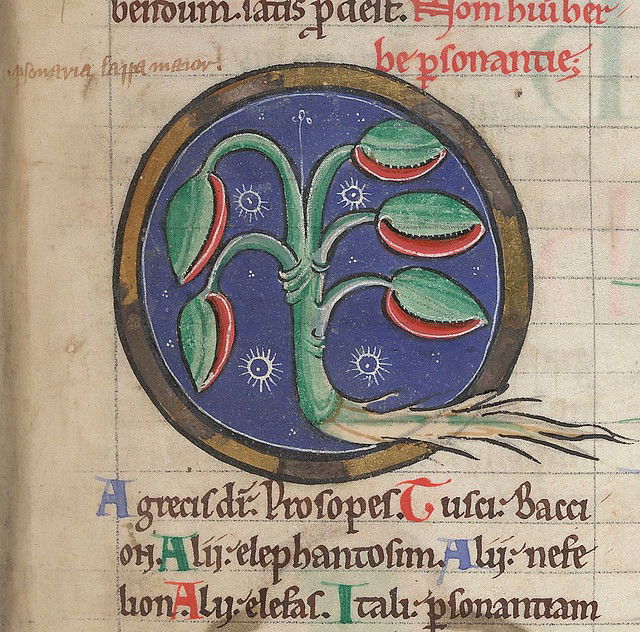 bendum. satis prodest. Nom huius her
be personantie;
personaria lappa maior
A grecis dr. Prosopes. Tusci: Bacci
on. Alij: elephantosim. Alij: nefe
lion. Alij: elefas. Itali: psonantiam